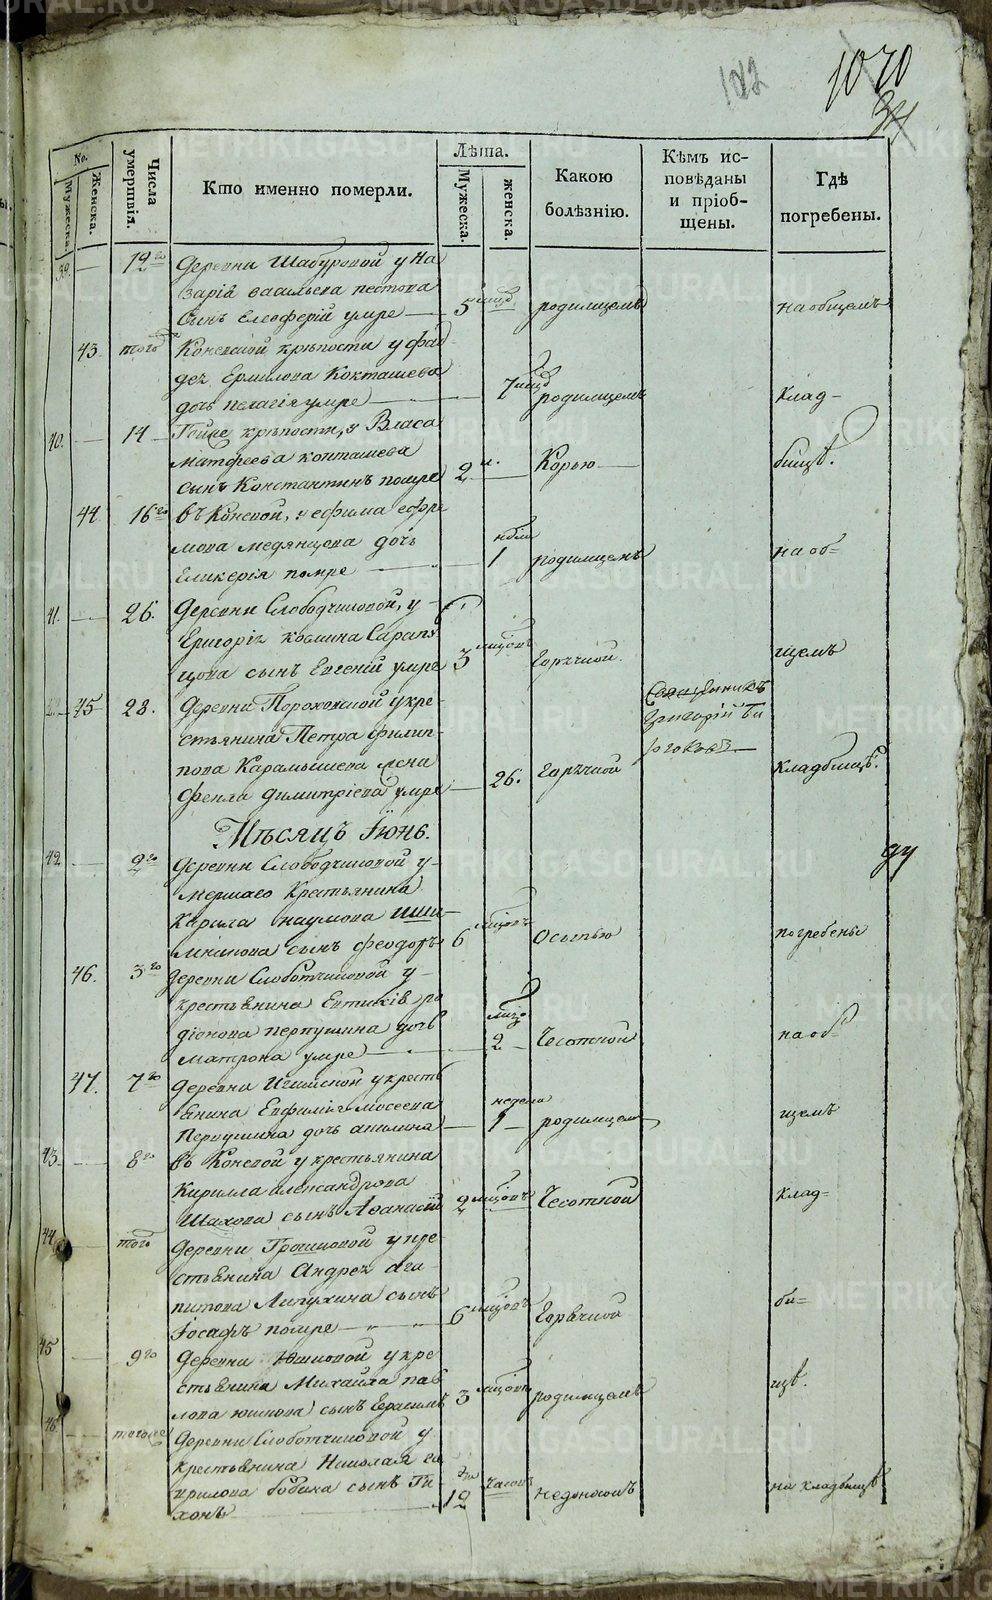 122
1070
34
№.
Мужеска.
Женска.
Числа умертвія.
Кто именно померли.
Лѣта.
Мужеска.
женска.
Какою болѣзнію.
Кѣмъ ис-
повѣданы
и пріоб-
щены.
Гдѣ
погребены.
39. — 12го Деревни Шабуровой у На
зарія васильева пестова
Сынъ Елевферій умре — 5 мцд родимцемъ на общемъ
43. того Коневской крѣпости у Фад
деч Ермилова Кокташева
дочь пелагія умре — 7 мцд родимцемъ клад-
40. — 14 Тойже крѣпости, у Власа
Матфеева кокташева
сынъ Константинъ помре 2 н. Корью бищѣ.
44 16го въ Коневой, у ефима ефре
мова медянцова дочь
Гликерія помре — 1 родимцемъ на об=
41. — 26. Деревни Слободчиковой, у
Григоріа козмина Сарап
цова сынъ Евгеній умре 3 мцовъ Горячкой. щемъ
45 28. Деревни Пороховской у кре-
стьянина Петра филип-
пова Карамышева жена
Фекла димитріева умре — 26. Горячкой Священникъ
Григорій
кладбищѣ.
Мѣсяцъ Іюнь.
42. — 2го Деревни Слободчиковой у-
мершаго Крестьянина
Карила наумова
сынъ феодоръ 6 мцовъ Осыпью погребены
46. 3го Деревни Слоботчиковой у-
крестьянина Евтихія ро
діонова перпушина дочь
Матрона умре — 2 Чесоткой на об-
47. 7го Деревни у кресть
янина Евфимія мосеева
Перпушина дочь акилина — недели 1 — родимцем щемъ
43. — 8го въ Коневой у крестьянина
Кирилла александрова
Шахова сынъ Афанасій 2 мцовъ Чесоткой клад=
44. того Деревни у кре-
стьянина Андреч ага-
питова Липухина сынъ
Іосафъ помре — 6 мцовъ Горячкой би=
45 — 9го Деревни Юшковой у кре
стьянина Михайла пав
лова юшкова сынъ Герасимъ 3 мцовъ родимцемъ щѣ.
46. — тогоже Деревни Слоботчиковой у
крестьянина Николая га
врилова бабина сынъ Ти-
хонъ — 12 часовъ недоноскъ на кладбищѣ